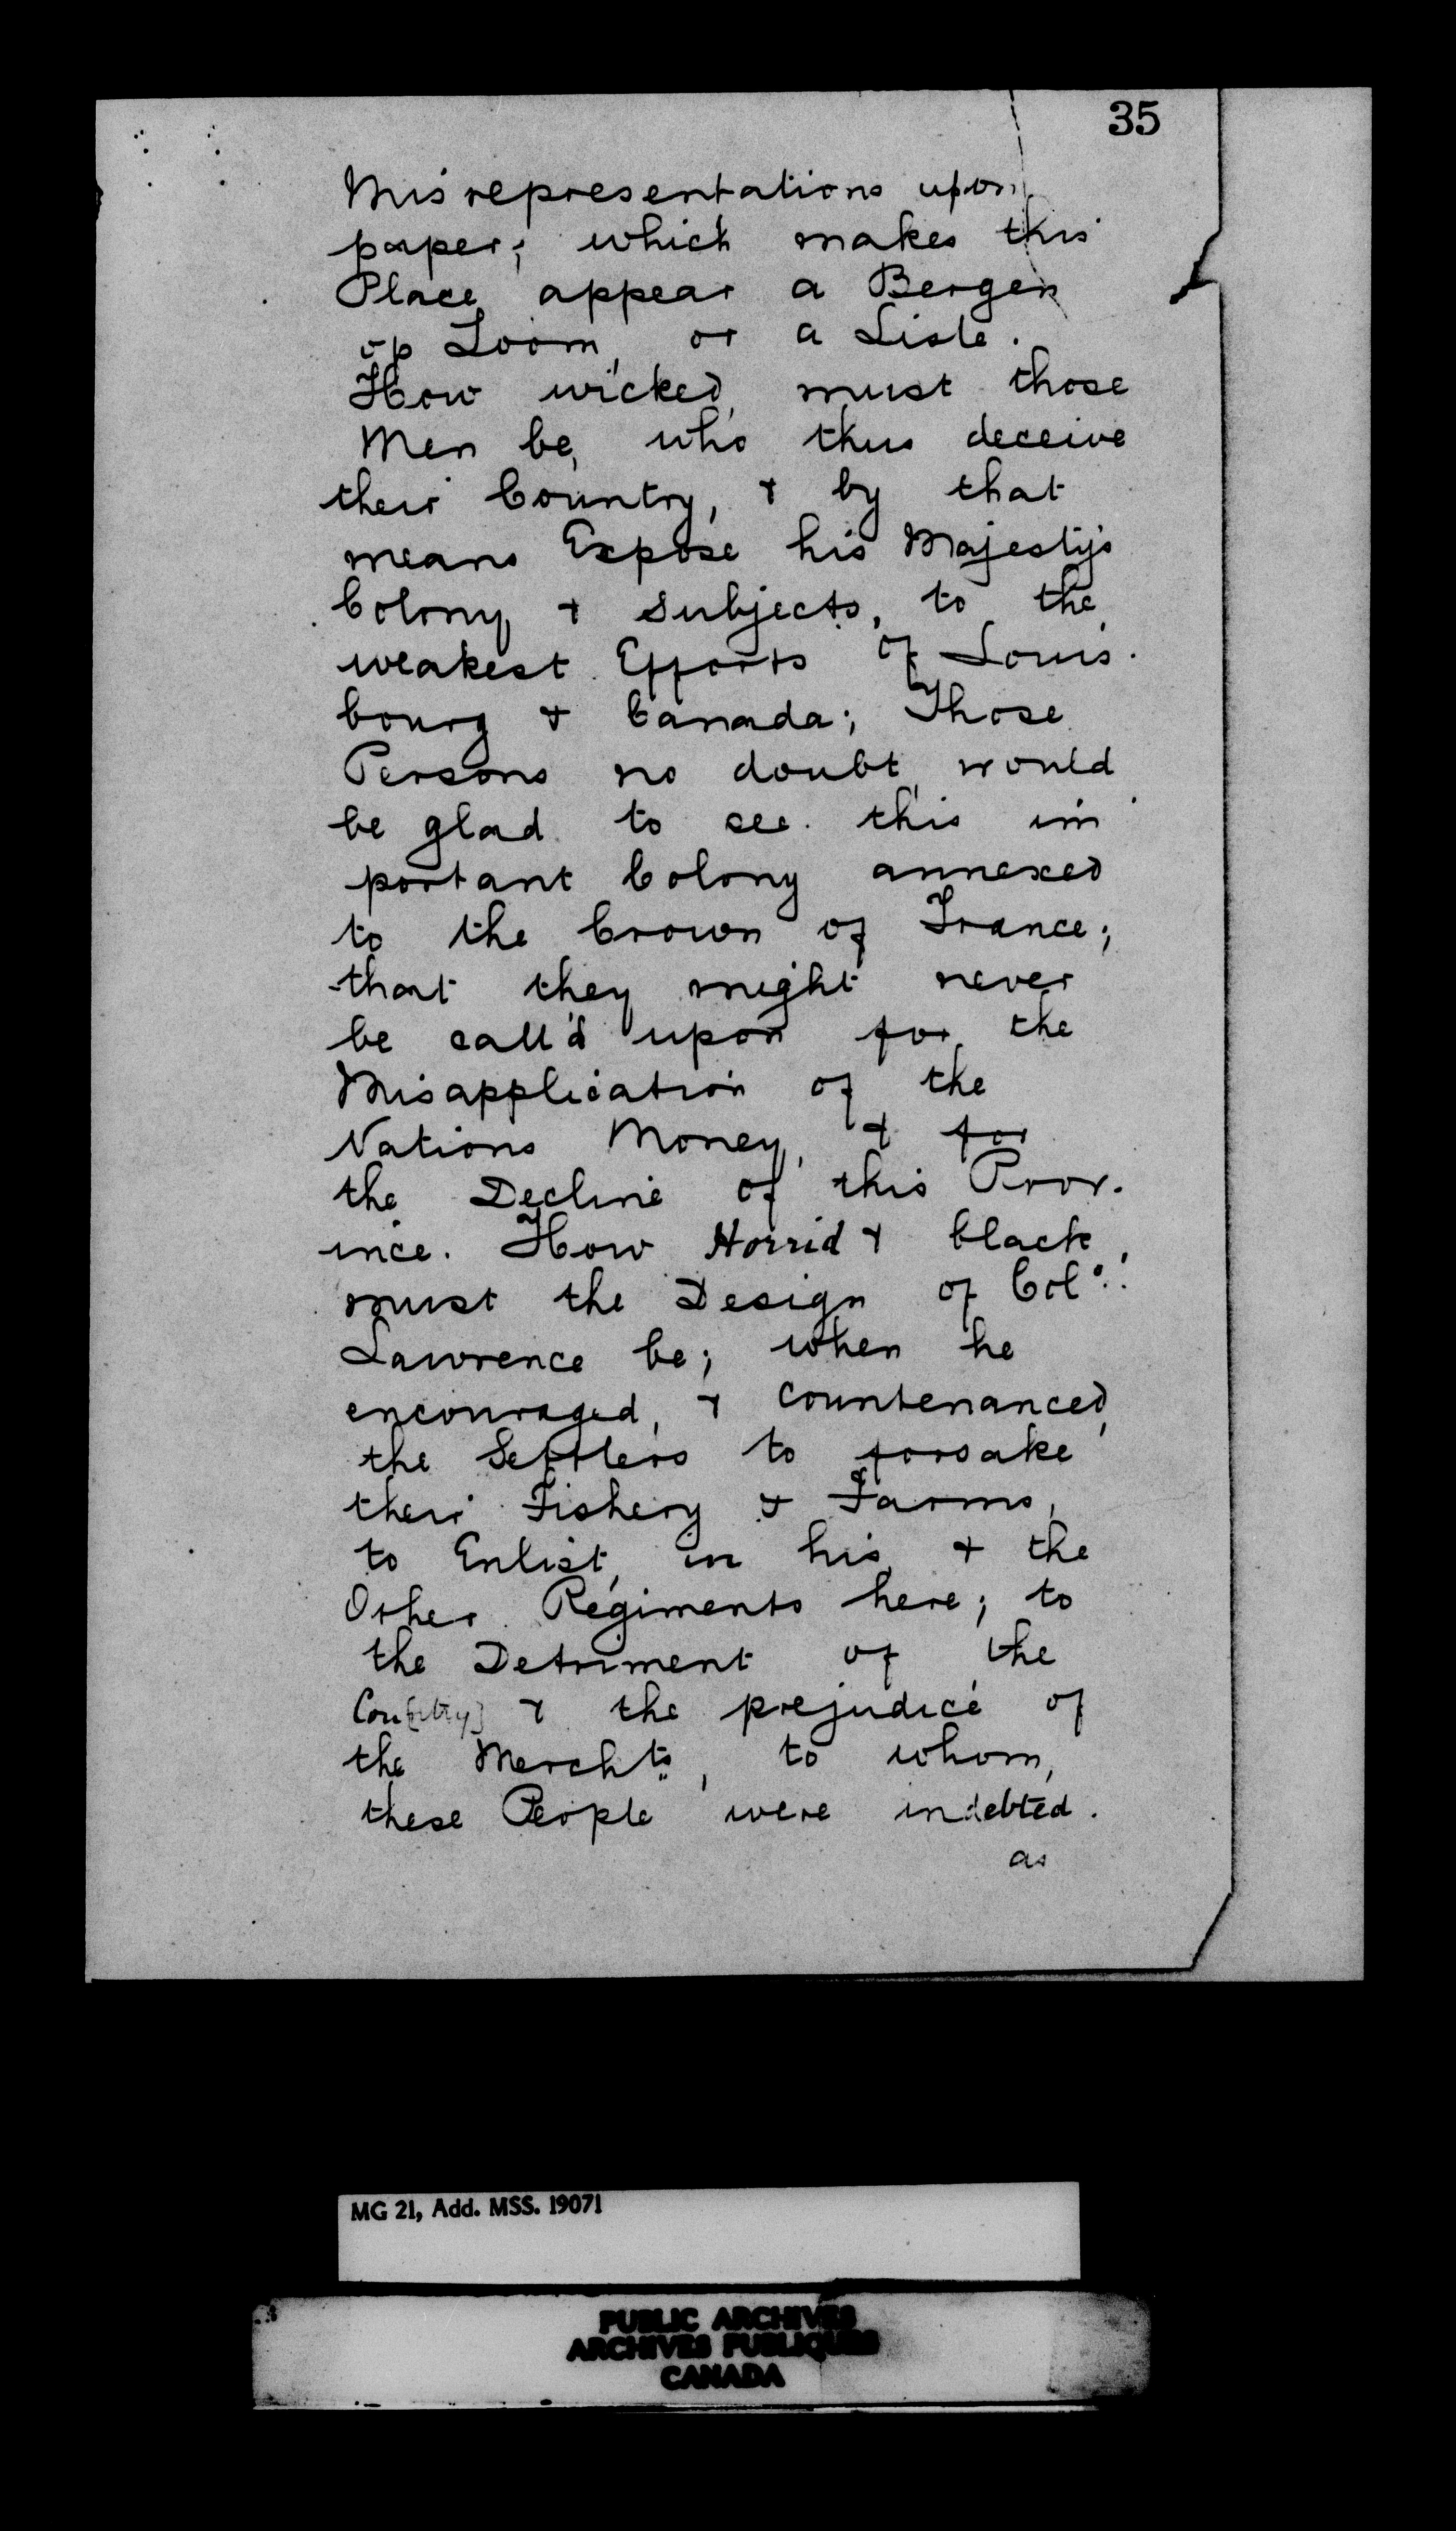 35
Misrepresentations upon
paper; which makes this
Place appear a Bergen
op Loom, or a Lisle.
How wicked, must those
Men be, who thus deceive
their Country, & by that
means Expose his Majesty's
Colony & Subjects, to the,
weakest Efforts of Louis-
bourg & Canada; Those
Persons no doubt, would
be glad to see this im-
portant Colony annexed
to the Crown of France;
that they might never
be call'd upon for, the
Misapplication of the
Nations Money, & for
the Decline of this Prov-
ince. How Horrid & black,
must the Design of Colo:
Lawrence be; when he
encouraged, & Countenanced,
the Settlers to forsake
their Fishery & Farms,
to Enlist, in his, & the
Other Regiments here; to
the Detriment of the
Cou[ntry] & the prejudice of
the Merchts, to whom,
these People were indebted.
as
MG 21, Add. MSS. 19071
PUBLIC ARCHIVES
ARCHIVES PUBLIQUES
CANADA